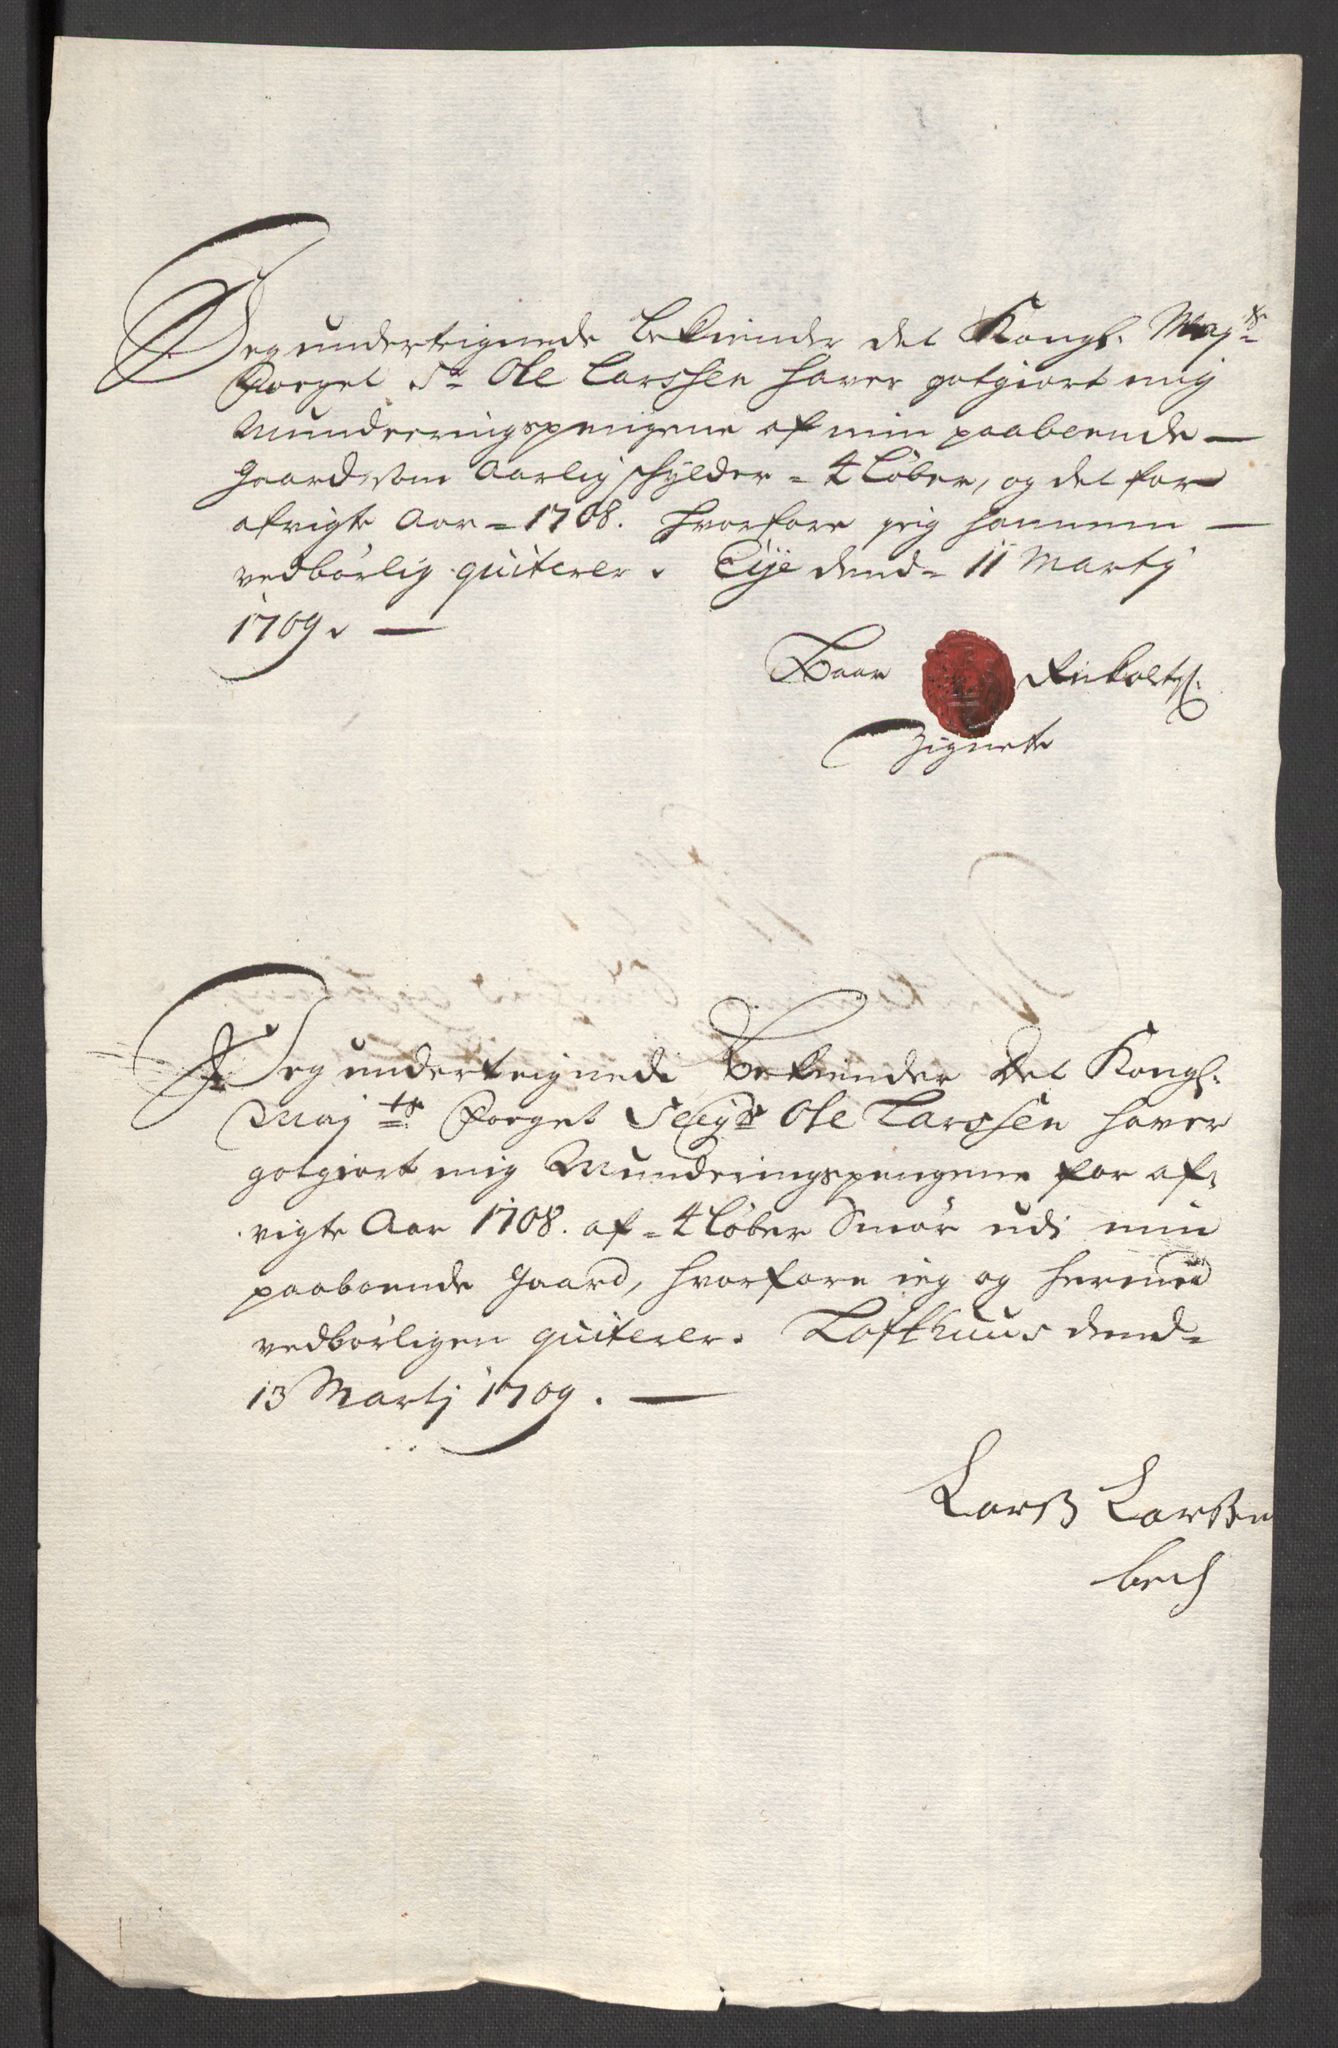 Jeg undertegnede bekiender det Kongl. Maj ts
Foeget Sr Ole Larssen hafver gotgiort mig
Munderingspengene af min paaboende —
Gaard, som Aarlig schylder = 4 Løber, og det for
afvigte Aar = 1708. Hvorfore jeg hannem —
vedbørlig quiterer. Eije dend = 11 Martij
1709. —
Baar
Zignete
Jeg underteignede Bekiender Det Kongl.
Maj ts Foeget Seigr Ole Larssen hafver
gotgiort mig Munderingspengene for af=
vigte Aar 1708. af = 4 Løber Smør udi min
paaboende Gaard, hvorfore jeg og hermed
vedbørligen quiterer. Lofthuus dend =
13 Martij 1709. —
Larß Larßen
bech